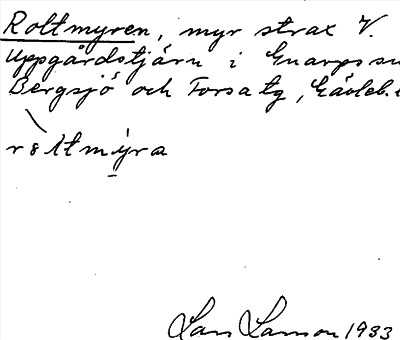 Roltmyren, myr strax V.
Uppgårdstjärn i Gnarps sn
Bergsjö och Forsa tg, Gävleb.l
r8ltmyra
Lars Larsson 1933